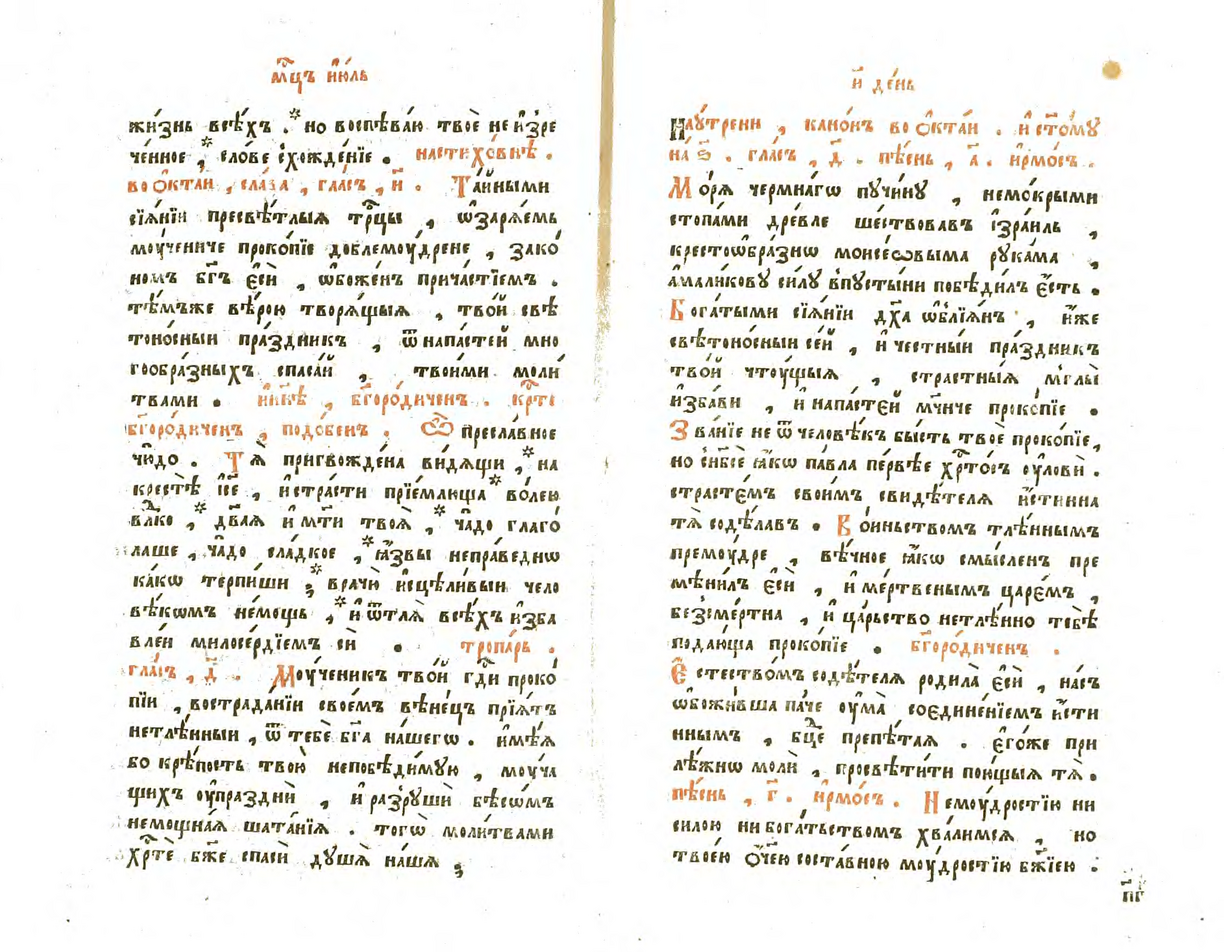 мцⷭ҇ъ і҆ю́ль
жи́знь всѣ́хъ . * но воспѣва́ю твоѐ неи҆зре
че́нное , * сло́ве схожде́нїе . настихо́внѣ .
во ѻ҆ктаи , сла́ва , гла́съ , и҃ . Та́йными
сїѧ́нїи пресвѣ́тлыѧ трⷪ҇цы , ѡ҆зарѧ́емь
моу́чениче проко́пїе доблемоу́дрене , зако́
номъ бг҃ъ є҆сѝ , ѡ҆бо́женъ прича́стїемъ .
тѣ́мъже вѣ́рою творѧ́щыѧ , тво́й свѣ
тоно́сныи пра́здникъ , ѿ напа́стей мно
гоѡбра́зныхъ спаса́й , твои́ми моли́
твами . и҆ны́нѣ , бг҃оро́диченъ . крⷭ҇то
бг҃оро́диченъ , подо́бенъ . Ѽ пресла́вное
чю́до . Тѧ̀ пригвожде́на ви́дѧщи , * на
крестѣ̀ і҆се , и҆ стра́сти прїе́млюща * во́лею
влⷣко , * дв҃аѧ и҆ мт҃и твоѧ̀ , * ча́до глаго́
лаше , ча́до сла́дкое , * ꙗ҆́звы непра́веднѡ
ка́кѡ терпи́ши ; * врачю̀ и҆сцѣли́выи чело
вѣ́кѡмъ не́мощь , * и҆ ѿ тлѧ̀ всѣ́хъ и҆зба
вле́й милосе́рдїемъ си . тропа́рь .
гла́съ , д҃ . Моу́ченикъ тво́й гдⷭ҇и проко́
пїи , востра́данїи свое́мъ вѣне́цъ прїѧ́тъ
нетлѣ́нныи , ѿ тебѐ бг҃а на́шегѡ . и҆мѣ́ѧ
бо крѣ́пость твою̀ непобѣди́мую , моу́ча
щихъ оу҆праздни̏ , и҆ разруши̏ бѣсѡ́мъ
немощна́ѧ шата́нїѧ . тогѡ̀ моли́твами
хрⷭ҇тѐ бж҃е спасѝ дꙋшѧ̀ на́шѧ ;
и҃ де́нь
На ᲂу҆́трени , кано́нъ во ѻ҆ктаи . и҆ ст҃о́му
на ѕ҃ . гла́съ , д҃ . пѣ́снь , а҃ . і҆рмо́съ .
Мо́рѧ че́рмнагѡ пучи́ну , немо́крыми
стопа́ми дре́вле ше́ствовавъ і҆зра́иль ,
крестоѡбра́знѡ моисе́ѡвыма рука́ма ,
а҆мали́кову си́лу впусты́ни побѣди́лъ є҆́сть .
Бога́тыми сїѧ́нїи дх҃а ѡ҆блїѧ́нъ , и҆́же
свѣтоно́сныи се́й , и҆ честны́и пра́здникъ
тво́й чтоу́щыѧ , стра́стныѧ мглы̀
и҆зба́ви , и҆ напа́стей мч҃нче проко́пїе .
Зва́нїе не ѿ человѣ́къ бы́сть твоѐ проко́пїе ,
но сн҃бсѐ ꙗ҆́кѡ па́вла пе́рвѣе хрⷭ҇то́съ оу҆лови̏ .
страсте́мъ свои́мъ свидѣ́телѧ и҆́стинна
тѧ̀ содѣ́лавъ . Во́иньствомъ тлѣ́ннымъ
премоу́дре , вѣ́чное ꙗ҆́кѡ смы́сленъ пре
мѣни́лъ є҆сѝ , и҆ ме́ртвенымъ царе́мъ ,
безсме́ртна , и҆ ца́рьство нетлѣ́нно тебѣ̀
подаю́ща проко́пїе . бг҃оро́диченъ .
Є҆стество́мъ содѣ́телѧ родила̀ є҆сѝ , на́съ
ѡ҆божи́вша па́че оу҆ма̀ соедине́нїемъ и҆́сти
ннымъ , бцⷣе препѣ́таѧ . є҆го́же при
лѣ́жнѡ молѝ , просвѣти́ти пою́щыѧ тѧ̀ .
пѣ́снь , г҃ . і҆рмо́съ . Не моу́дростїю ни
си́лою ни бога́тьствомъ хва́лимсѧ , но
твое́ю ѻ҆́чею соста́вною моу́дростїю бж҃їею .
пг҃